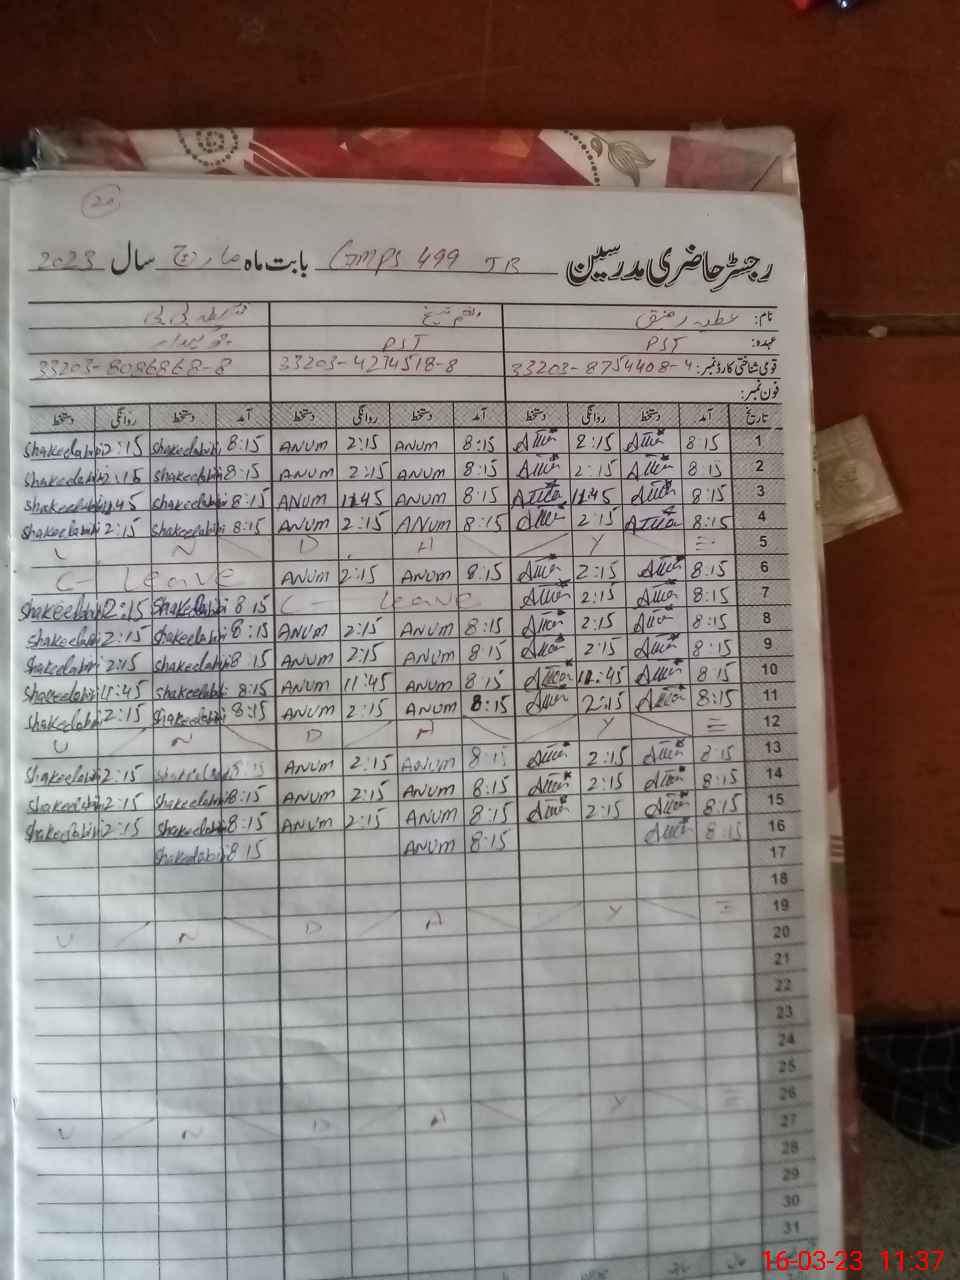 20
رجسٹر حاضری مدرسین GMPS 499 JB بابت ماہ مارچ سال 2023
نام: عطیہ رفیق
عہدہ: PST PST
قومی شناختی کارڈ نمبر: 33203-8754408-4 33203-4274518-8 33203-8086868-8
فون نمبر:
تاریخ آمد دستخط روانگی دستخط آمد دستخط روانگی دستخط آمد دستخط روانگی دستخط
1 8:15 Attia 2:15 Attia 8:15 ANUM 2:15 ANUM 8:15 Shakeelabibi 2:15 Shakeelabibi
2 8:15 Attia 2:15 Attia 8:15 ANUM 2:15 ANUM 8:15 Shakeelabibi 2:15 Shakeelabibi
3 8:15 Attia 11:45 Attia 8:15 ANUM 11:45 ANUM 8:15 Shakeelabibi 11:45 Shakeelabibi
4 8:15 Attia 2:15 Attia 8:15 ANUM 2:15 ANUM 8:15 Shakeelabibi 2:15 Shakeelabibi
5 U N D A Y
6 8:15 Attia 2:15 Attia 8:15 ANUM 2:15 ANUM C- Leave
7 8:15 Attia 2:15 Attia C- Leave 8:15 Shakeelabibi 2:15 Shakeelabibi
8 8:15 Attia 2:15 Attia 8:15 ANUM 2:15 ANUM 8:15 Shakeelabibi 2:15 Shakeelabibi
9 8:15 Attia 2:15 Attia 8:15 ANUM 2:15 ANUM 8:15 Shakeelabibi 2:15 Shakeelabibi
10 8:15 Attia 11:45 Attia 8:15 ANUM 11:45 ANUM 8:15 Shakeelabibi 11:45 Shakeelabibi
11 8:15 Attia 2:15 Attia 8:15 ANUM 2:15 ANUM 8:15 Shakeelabibi 2:15 Shakeelabibi
12 U N D A Y
13 8:15 Attia 2:15 Attia 8:15 ANUM 2:15 ANUM 8:15 Shakeelabibi 2:15 Shakeelabibi
14 8:15 Attia 2:15 Attia 8:15 ANUM 2:15 ANUM 8:15 Shakeelabibi 2:15 Shakeelabibi
15 8:15 Attia 2:15 Attia 8:15 ANUM 2:15 ANUM 8:15 Shakeelabibi 2:15 Shakeelabibi
16 8:15 Attia 8:15 ANUM 8:15 Shakeelabibi
17
18
19 U N D A Y
20
21
22
23
24
25
26 U N D A Y
27
28
29
30
31
16-03-23 11:37